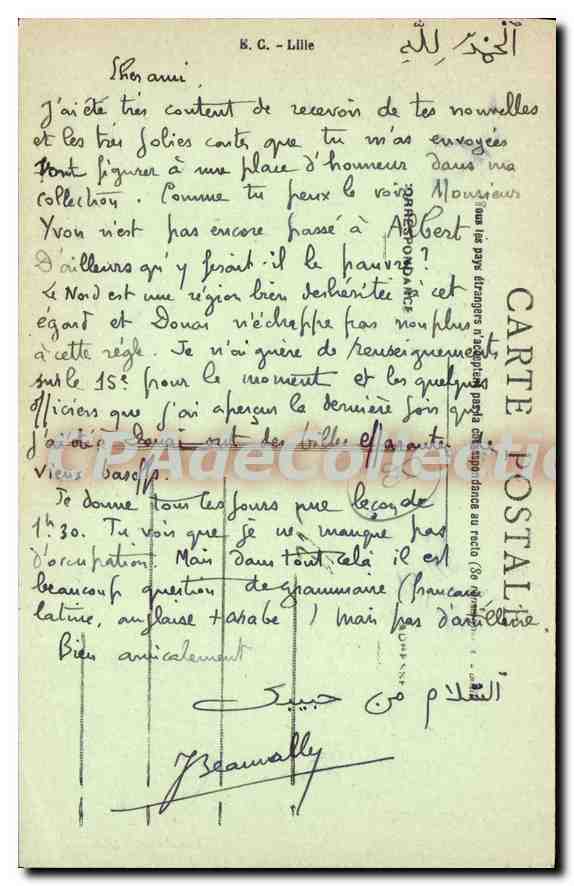 E. C. - Lille
الحمد لله
Cher ami,
J'ai été très content de recevoir de tes nouvelles
et les très jolies cartes que tu m'as envoyées
vont figurer à une place d'honneur dans ma
collection. Comme tu peux le voir Monsieur
Yvon n'est pas encore passé à Albert
D'ailleurs qu'y ferait-il le pauvre?
Le Nord est une région bien deshéritée à cet
égard et Douai n'échappe pas non plus
à cette règle. Je n'ai guère de renseignements
sur le 15e pour le moment et les quelques
officiers que j'ai aperçus la dernière fois que
j'ai été à Douai ont des
vieux
Je donne tous les jours une leçon de
1h30. Tu vois que je ne manque pas
d'occupation. Mais dans tout cela il est
beaucoup question de grammaire (française
latine, anglaise + arabe) mais pas d'artillerie.
Bien amicalement
السلام من حبيبك
CARTE POSTALE
Tous les pays étrangers n'acceptent pas la correspondance au recto (Se
CORRESPONDANCE
ADRESSE
CPAdeCollection